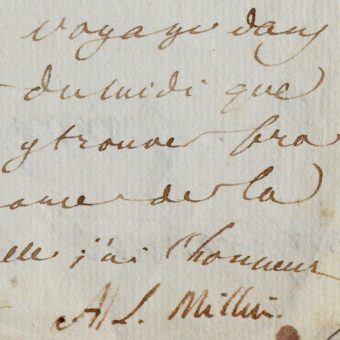 voyage dans
du midi que
y trouve
de la
j'ai l'honneur
A L. Millin.